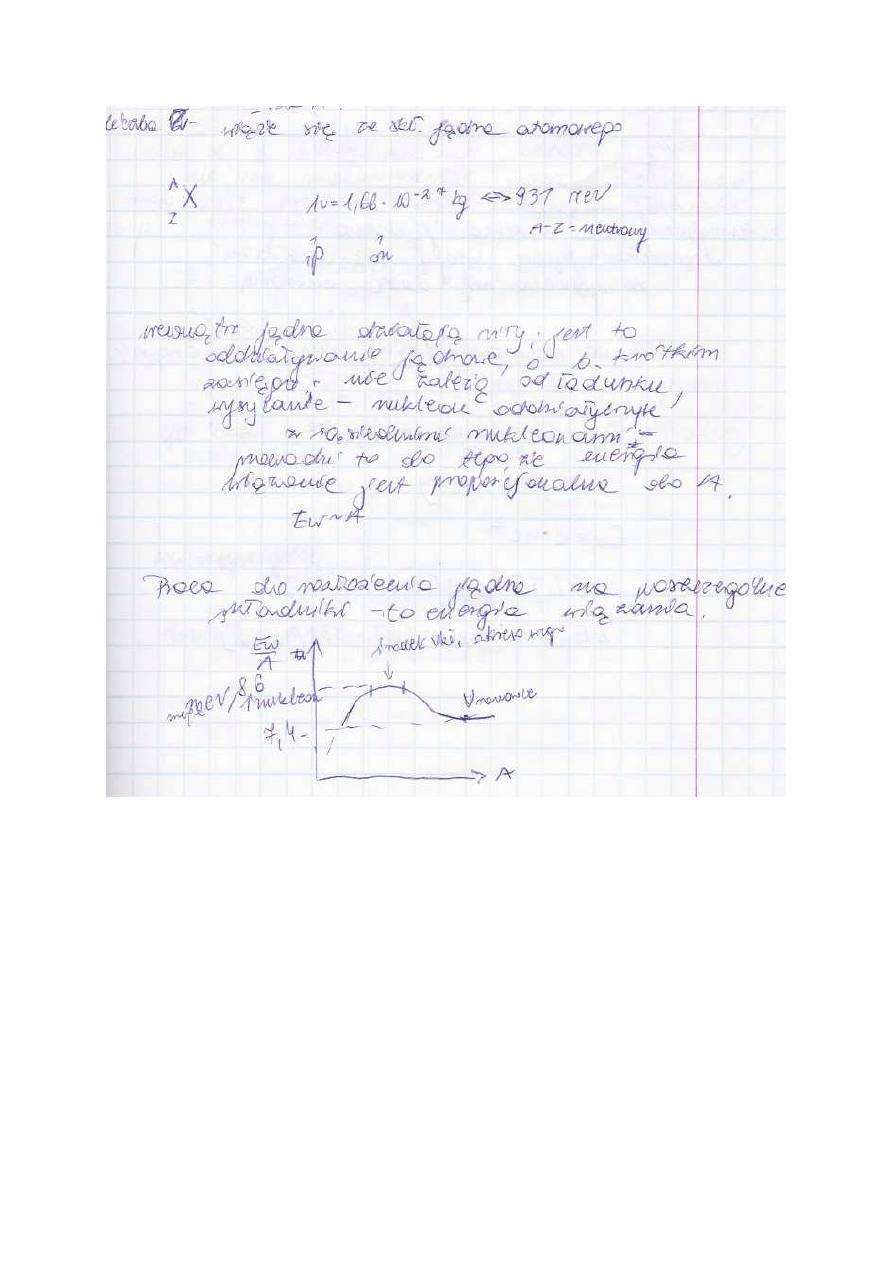 liczba Z - wiąże się ze skł. jądra atomowego
A
Z X
1u = 1,66 · 10⁻²⁷ kg <=> 931 MeV
A-Z = neutrony
1
1p
1
0n
wewnątrz jądra działają siły, jest to
oddziaływanie jądrowe, o b. krótkim
zasięgu, nie zależą od ładunku,
wysycanie – nukleon oddziałuje
z sąsiednimi nukleonami -
prowadzi to do tego, że energia
wiązania jest proporcjonalna do A.
Ew ~ A
Praca do rozłożenia jądra na poszczególne
składniki – to energia wiązania.
Ew
A
środek ukł. okresowego
8,6
MeV/1nukleon
Uranowce
7,4 -
A